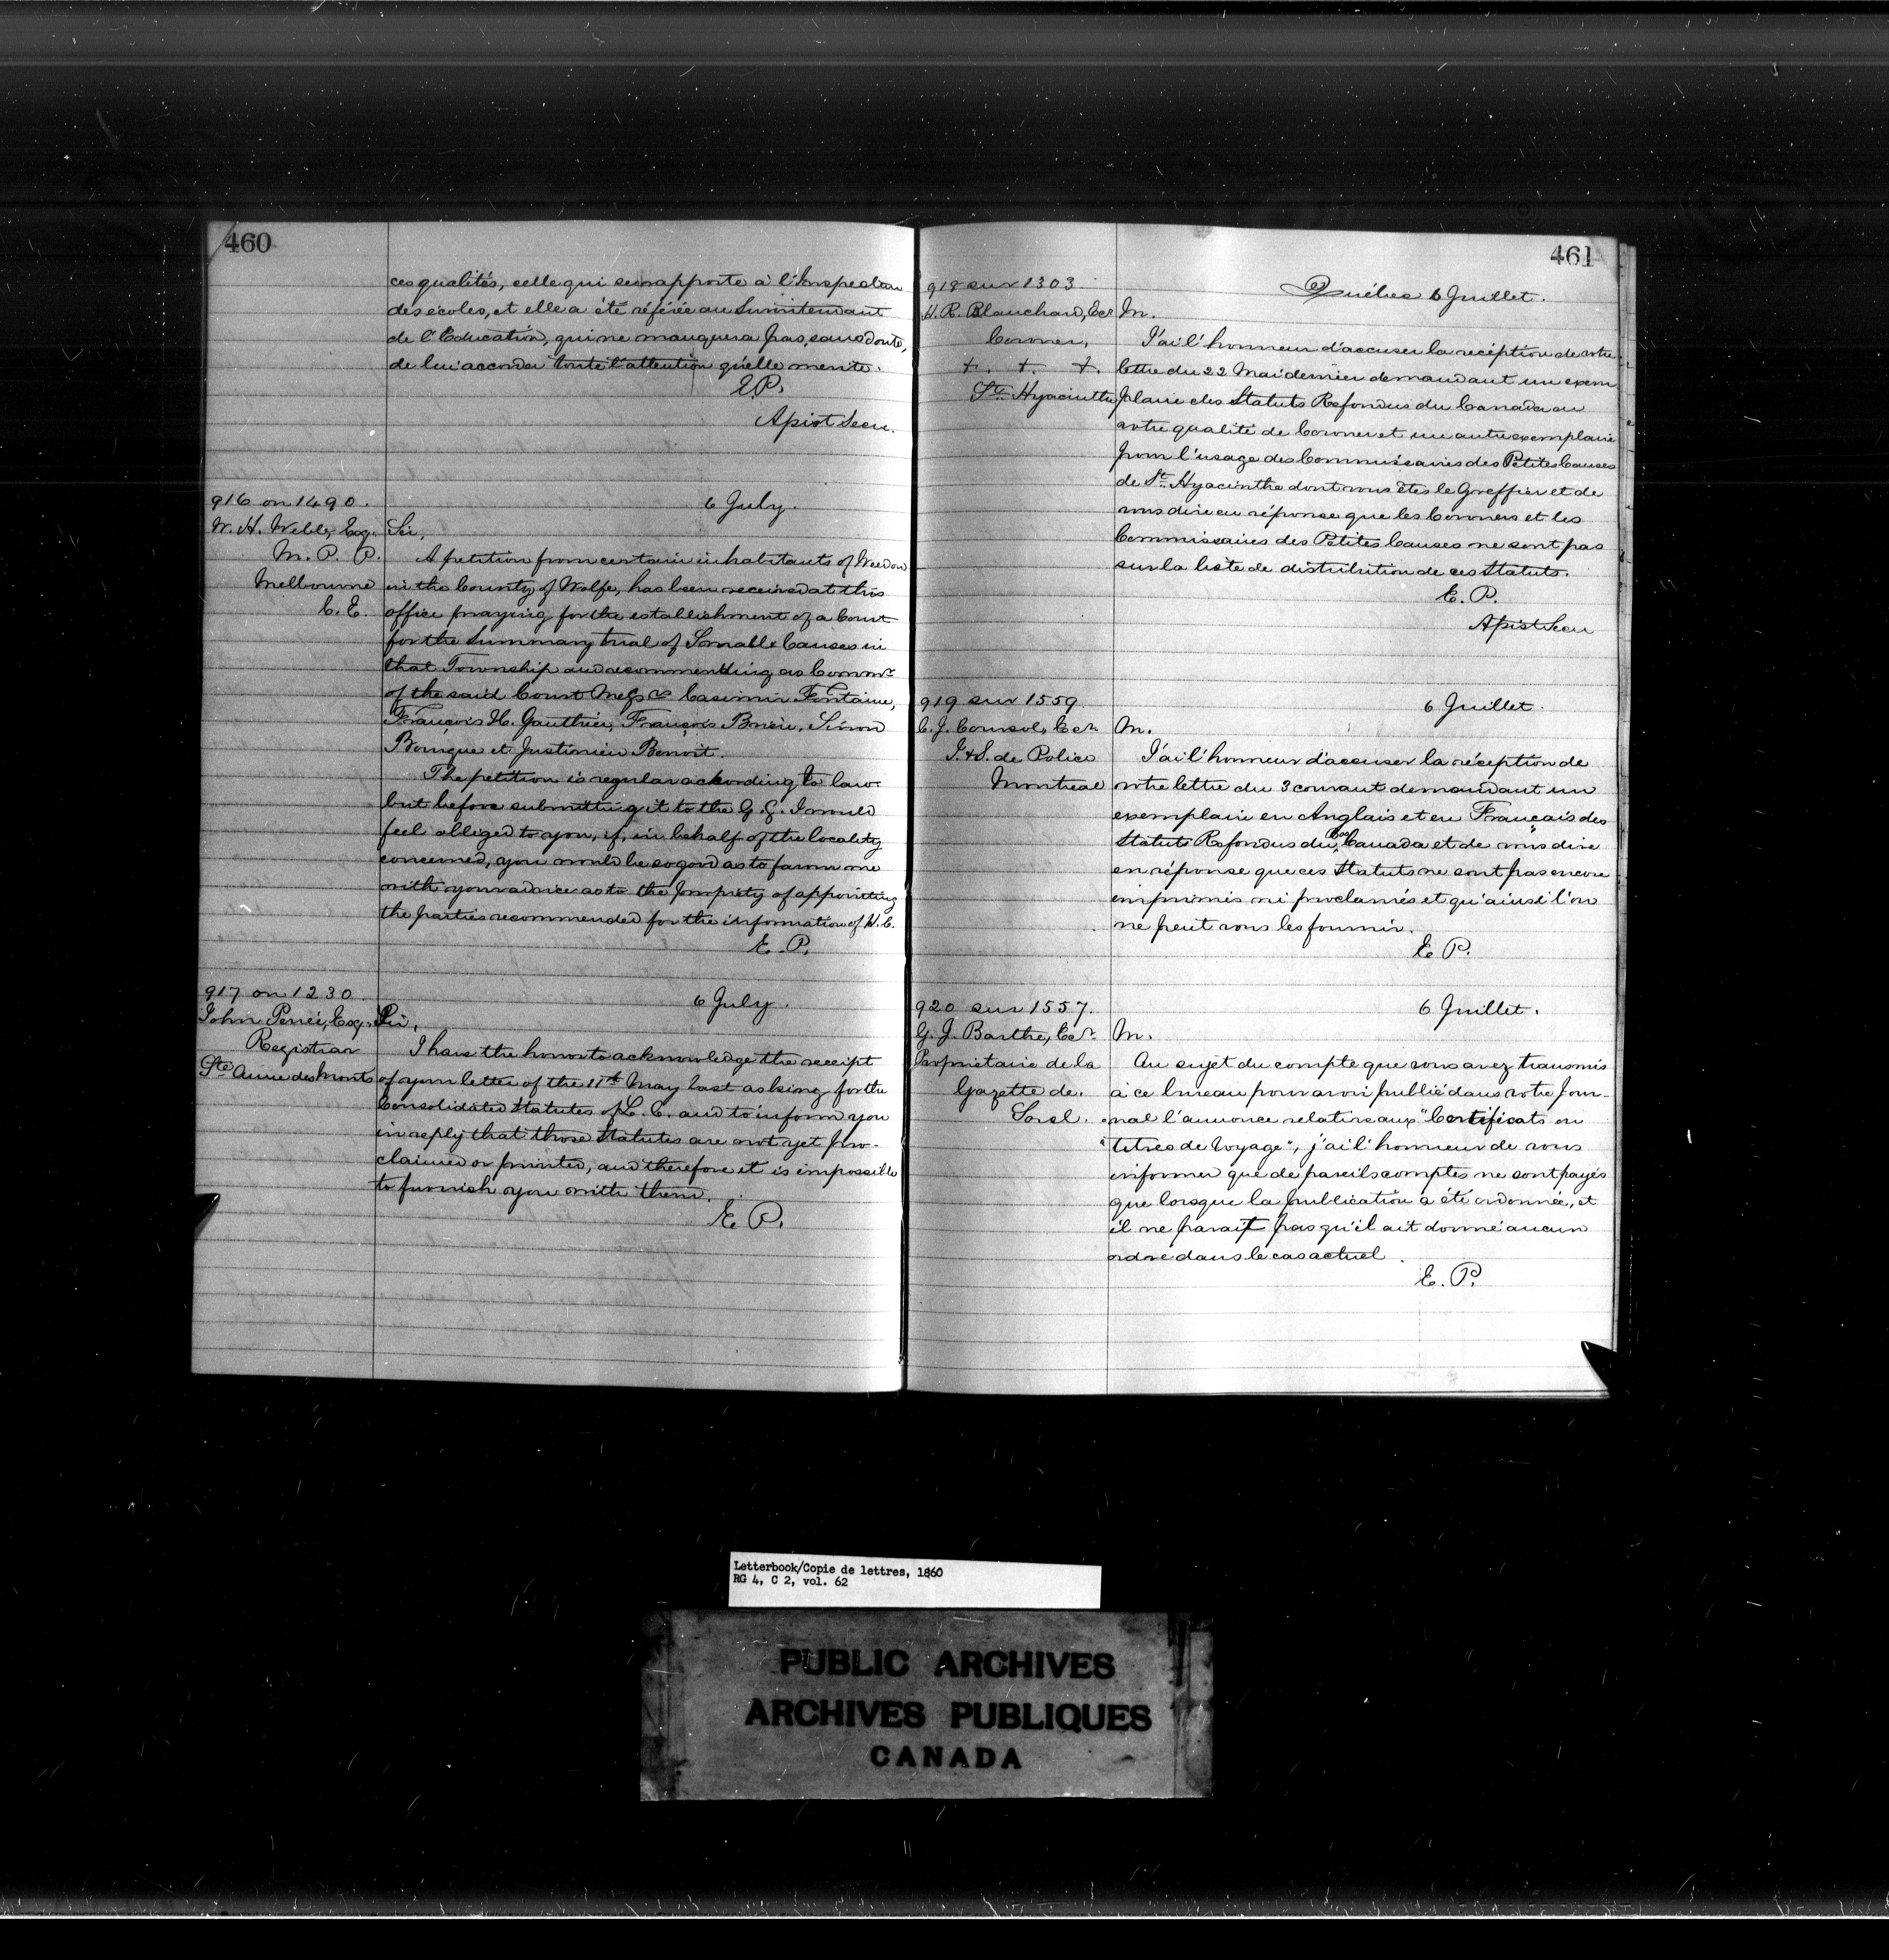 460
ces qualités, celle qui se rapporte à l'Inspection
des écoles, et elle a été référée au Surintendant
de l'Education, qui ne manquera pas, sans doute,
de lui accorder toute l'attention qu'elle merite.
E.P.
Assist Secy.
916 on 1490.
W. H. Webb, Esq.
M. P. P.
Melbourne
C. E.
6 July.
Sir,
A petition from certain inhabitants of Weedon
in the County of Wolfe, has been received at this
office praying for the establishment of a Court
for the Summary trial of Small Causes in
that Township and recommending as Commrs
of the said Court Messrs Casimir Fontaine,
François H. Gauthier, François Brière, Siméon
Bourque et Justinien Benoit.
The petition is regular according to law.
but before submitting it to the G. G. I would
feel obliged to you, if, in behalf of the locality
concerned, you would be so good as to favor me
with your advice as to the propriety of appointing
the parties recommended for the information of H. E.
E. P.
917 on 1230.
John Perrée, Esq.
Registrar
Ste Anne des Monts
6 July.
Sir,
I have the honor to acknowledge the receipt
of your letter of the 11th May last asking for the
Consolidated Statutes of L. C. and to inform you
in reply that those Statutes are not yet pro-
claimed or printed, and therefore it is impossible
to furnish you with them.
E. P.
461
918 sur 1303
H. R. Blanchard, Ecr
Coroner,
+. +. +.
St. Hyacinthe
Québec 6 Juillet.
M.
J'ai l'honneur d'accuser la réception de votre
lettre du 22 Mai dernier demandant un exem
plaire des Statuts Refondus du Canada en
votre qualité de Coroner et un autre exemplaire
pour l'usage des Commissaires des Petites Causes
de St. Hyacinthe dont vous êtes le Greffier et de
vous dire en réponse que les Coroners et les
Commissaires des Petites Causes ne sont pas
sur la liste de distribution de ces Statuts.
E. P.
Assist Secy
919 sur 1559
C. J. Coursol, Ecr.
I. & S. de Police
Montreal
6 Juillet.
M.
J'ai l'honneur d'accuser la réception de
votre lettre du 3 courant demandant un
exemplaire en Anglais et en Français des
Statuts Refondus du Bas Canada et de vous dire
en réponse que ces Statuts ne sont pas encore
imprimés ni proclamés et qu'ainsi l'on
ne peut vous les fournir.
E P.
920 sur 1557.
G. J. Barthe, Ecr.
Propriétaire de la
Gazette de.
Sorel.
6 Juillet.
M.
Au sujet du compte que vous avez transmis
à ce bureau pour avoir publié dans votre Jour-
nal l'annonce relative aux "Certificats ou
"titres de Voyage", j'ai l'honneur de vous
informer que de pareils comptes ne sont payés
que lorsque la publication a été ordonnée, et
il ne parait pas qu'il ait donné aucun
ordre dans le cas actuel.
E. P.
Letterbook/Copie de lettres, 1860
RG 4, C 2, vol. 62
PUBLIC ARCHIVES
ARCHIVES PUBLIQUES
CANADA